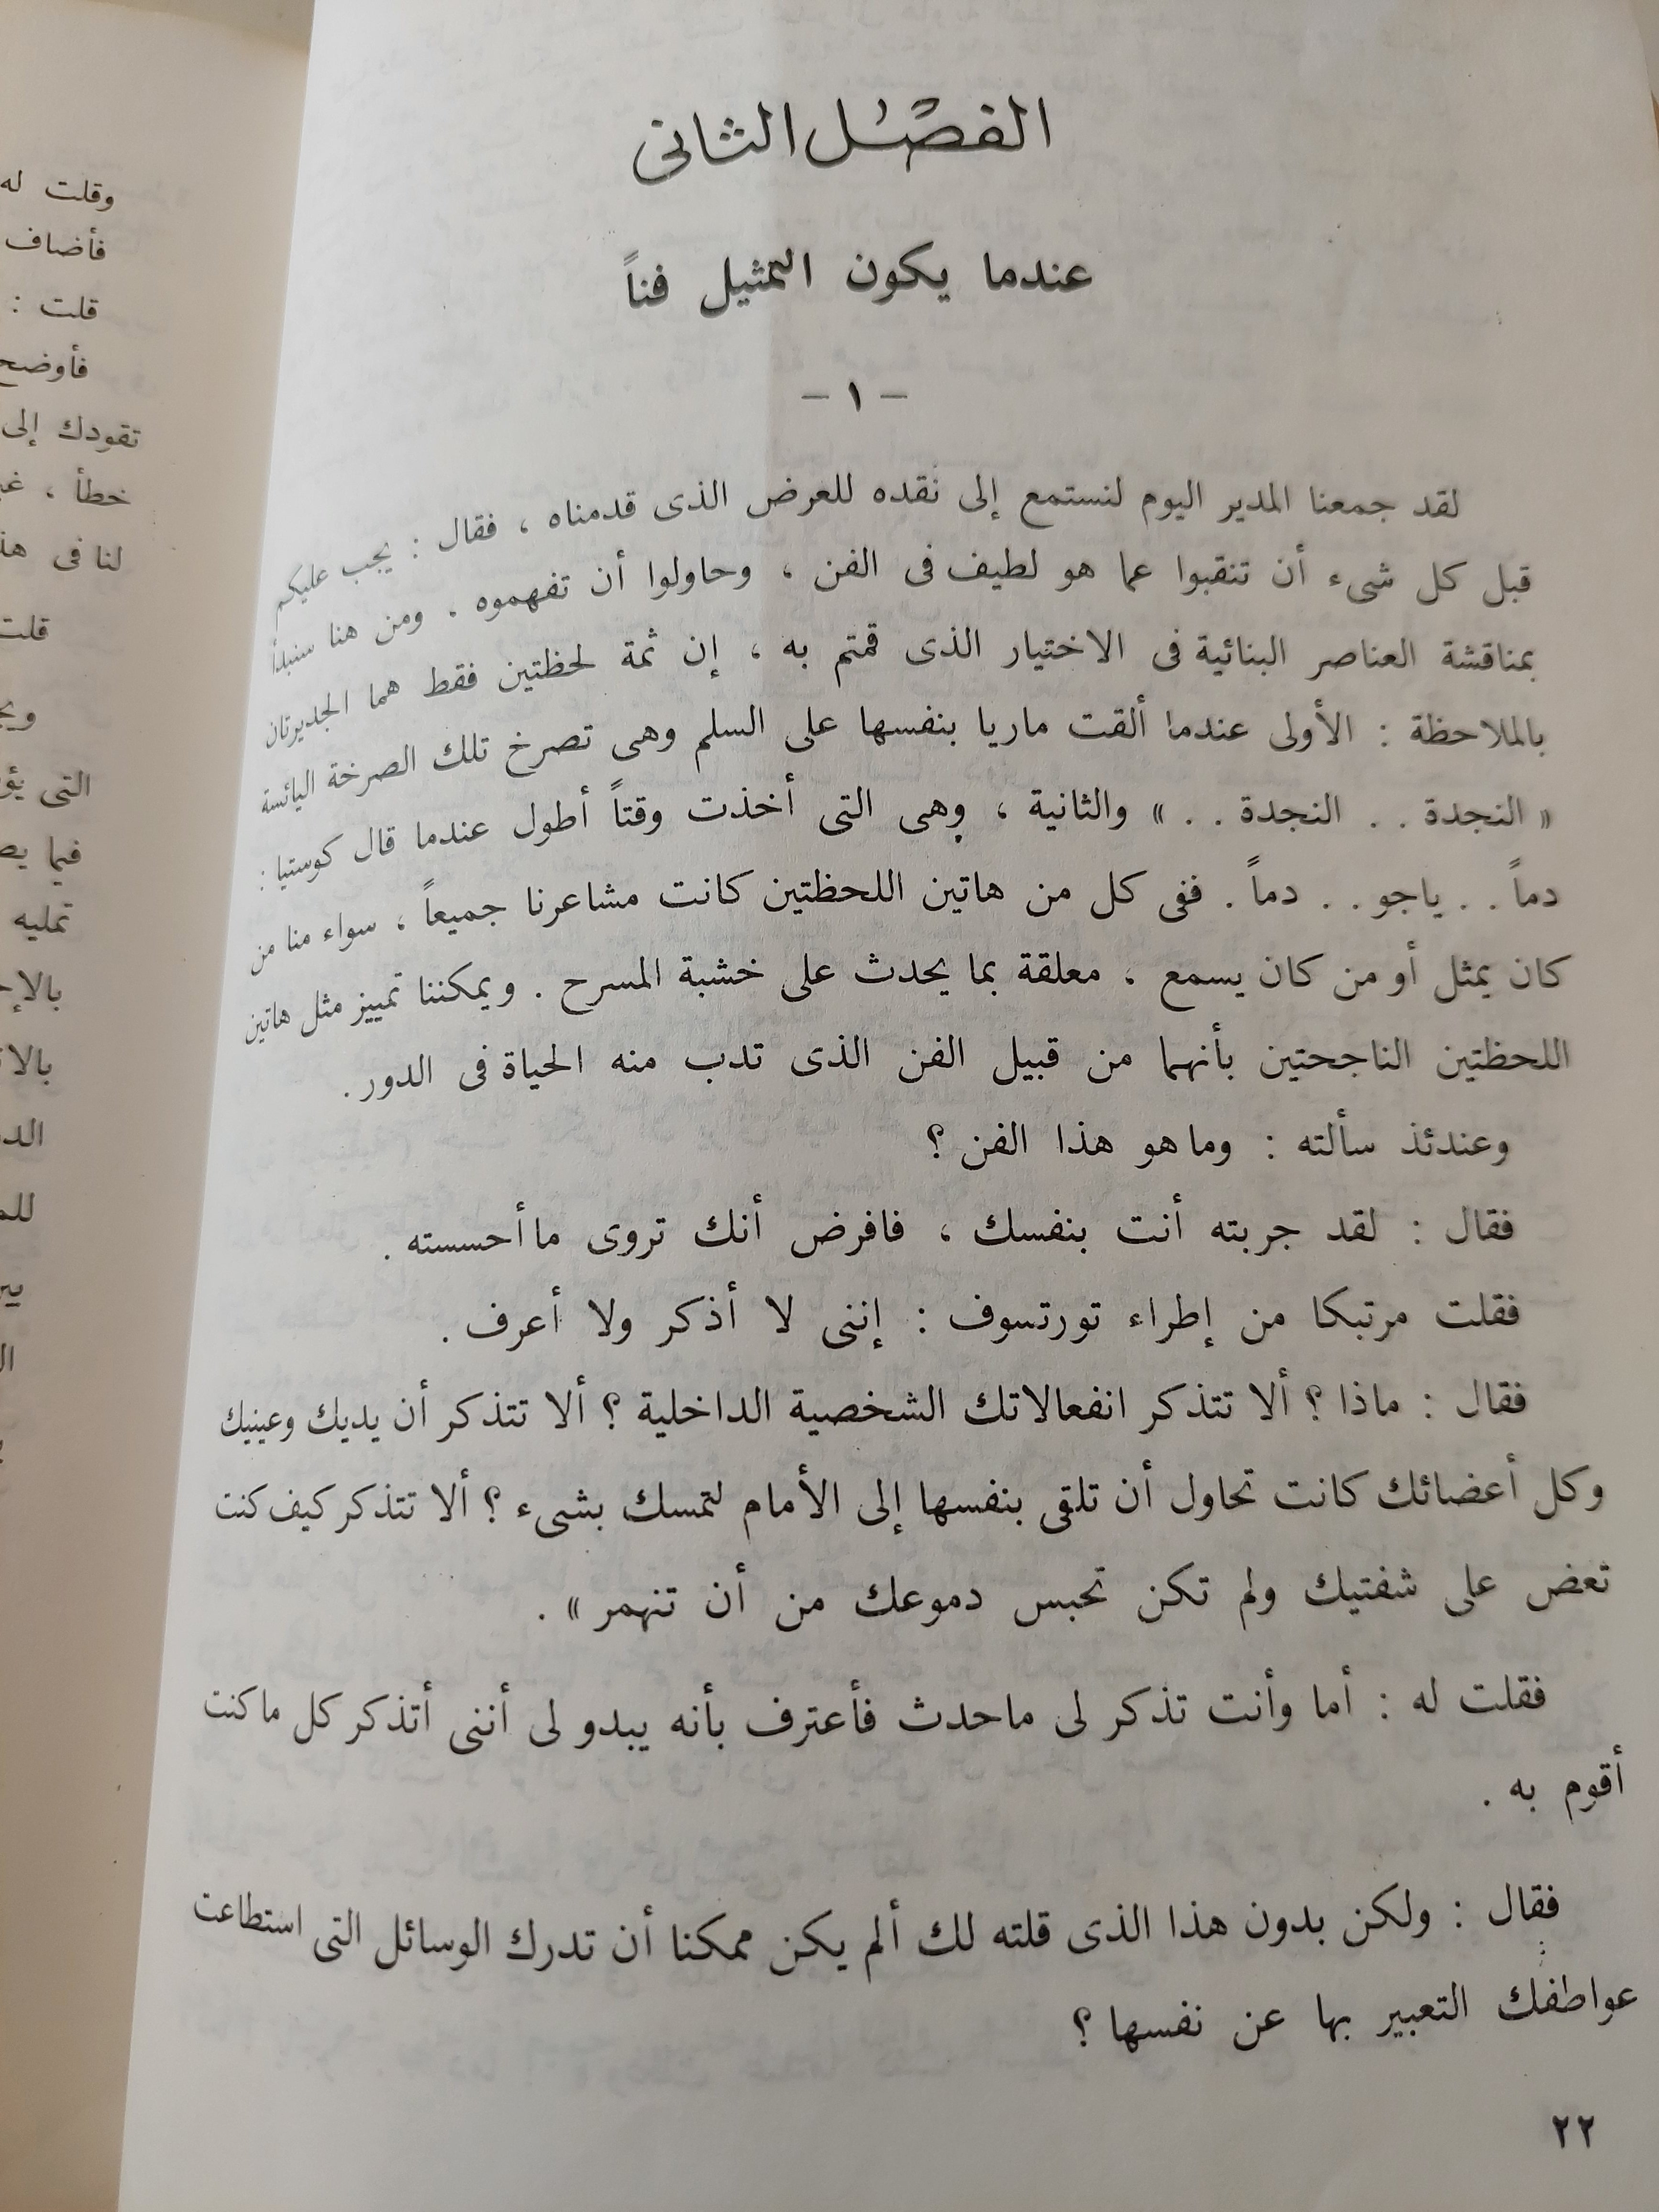 الفصل الثانى
عندما يكون التمثيل فناً
– ١ –
لقد جمعنا المدير اليوم لنستمع إلى نقده للعرض الذى قدمناه ، فقال : يجب عليكم
قبل كل شىء أن تنقبوا عما هو لطيف فى الفن ، وحاولوا أن تفهموه . ومن هنا سنبدأ
بمناقشة العناصر البنائية فى الاختيار الذى قمتم به ، إن ثمة لحظتين فقط هما الجديرتان
بالملاحظة : الأولى عندما ألقت ماريا بنفسها على السلم وهى تصرخ تلك الصرخة اليائسة
« النجدة . . النجدة . . » والثانية ، وهى التى أخذت وقتاً أطول عندما قال كوستيا :
دماً . . ياجو . . دماً . ففى كل من هاتين اللحظتين كانت مشاعرنا جميعاً ، سواء منا من
كان يمثل أو من كان يسمع ، معلقة بما يحدث على خشبة المسرح . ويمكننا تمييز مثل هاتين
اللحظتين الناجحتين بأنهما من قبيل الفن الذى تدب منه الحياة فى الدور .
وعندئذ سألته : وما هو هذا الفن ؟
فقال : لقد جربته أنت بنفسك ، فافرض أنك تروى ما أحسسته .
فقلت مرتبكا من إطراء تورتسوف : إننى لا أذكر ولا أعرف .
فقال : ماذا ؟ ألا تتذكر انفعالاتك الشخصية الداخلية ؟ ألا تتذكر أن يديك وعينيك
وكل أعضائك كانت تحاول أن تلقى بنفسها إلى الأمام لتمسك بشىء ؟ ألا تتذكر كيف كنت
تعض على شفتيك ولم تكن تحبس دموعك من أن تنهمر » .
فقلت له : أما وأنت تذكر لى ماحدث فأعترف بأنه يبدو لى أننى أتذكر كل ما كنت
أقوم به .
فقال : ولكن بدون هذا الذى قلته لك ألم يكن ممكنا أن تدرك الوسائل التى استطاعت
عواطفك التعبير بها عن نفسها ؟
٢٢
وقلت له
فأضاف
قلت :
فأوضح
تقودك إلى
خطأ ،
لنا فى
قلت
التى
فيما
تمليه